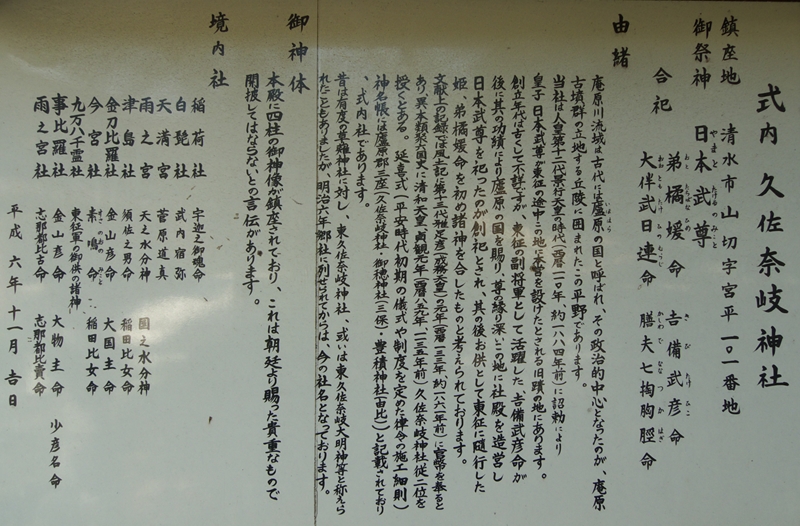 式内 久佐奈岐神社
鎮座地 清水市山切字宮平一〇一番地
御祭神 日本武尊
やまとたけるのみこと
弟橘媛命 吉備武彦命
おとたちばなひめ きびたけひこ
合祀 大伴武日連命 膳夫七掬胸脛命
おおともたけひむらじ かしわでおなつかはぎ
由緒
庵原川流域は古代に廬原の国と呼ばれ、その政治的中心となったのが、庵原
いほはら
古墳群の立地する丘陵に囲まれたこの平野であります。
当社は人皇第十二代景行天皇の時代(西暦一一〇年 約一八八四年前)に詔勅により
皇子 日本武尊が東征の途中この地に本営を設けたとされる旧蹟の地にあります。
創立年代は古くして不詳ですが、東征の副将軍として活躍した、吉備武彦命が
後に其の功績により廬原の国を賜り、尊の縁り深いこの地に社殿を造営し
日本武尊を祀ったのが創祀とされ、其の後お供として東征に随行した
姫 弟橘媛命を初め諸神を合したものと考えられております。
文献上の記録では風土記に第十三代稚足彦(成務天皇)の元年(西暦一三一年、約一八六一年前)に官幣を奉ると
あり、異本類聚大国史に清和天皇貞観元年(西暦八五九年、一一三五年前)久佐奈岐神社従二位を
授くとある。延喜式(平安時代初期の儀式や制度を定めた律令の施工細則)
神名帳には廬原郡三座(久佐奈岐神社・御穂神社(三保)・豊積神社(由比))と記載されており
、式内社であります。
昔は有度の草薙神社に対し、東久佐奈岐神社、或いは東久佐奈岐大明神等と称えら
れたこともありましたが、明治六年郷社に列せられてからは、今の社名となっております。
御神体
本殿に四柱の御神像が鎮座されており、これは朝廷より賜った貴重なもので
開扱してはならないとの言伝があります。
境内社
稲荷社 宇迦之御魂命
白髭社 武内宿弥
天満宮 菅原道真
雨之宮 天之水分神 国之水分神
津島社 須佐之男命 稲田比女命
金刀比羅社 金山彦命 大国主命
今宮社 素嗚命 稲田比女命
九万八千霊社 東征軍の御供の諸神
事比羅社 金山彦命 大物主命 少彦名命
雨之宮社 志那都比古命 志那都比賣命
平成六年十一月吉日